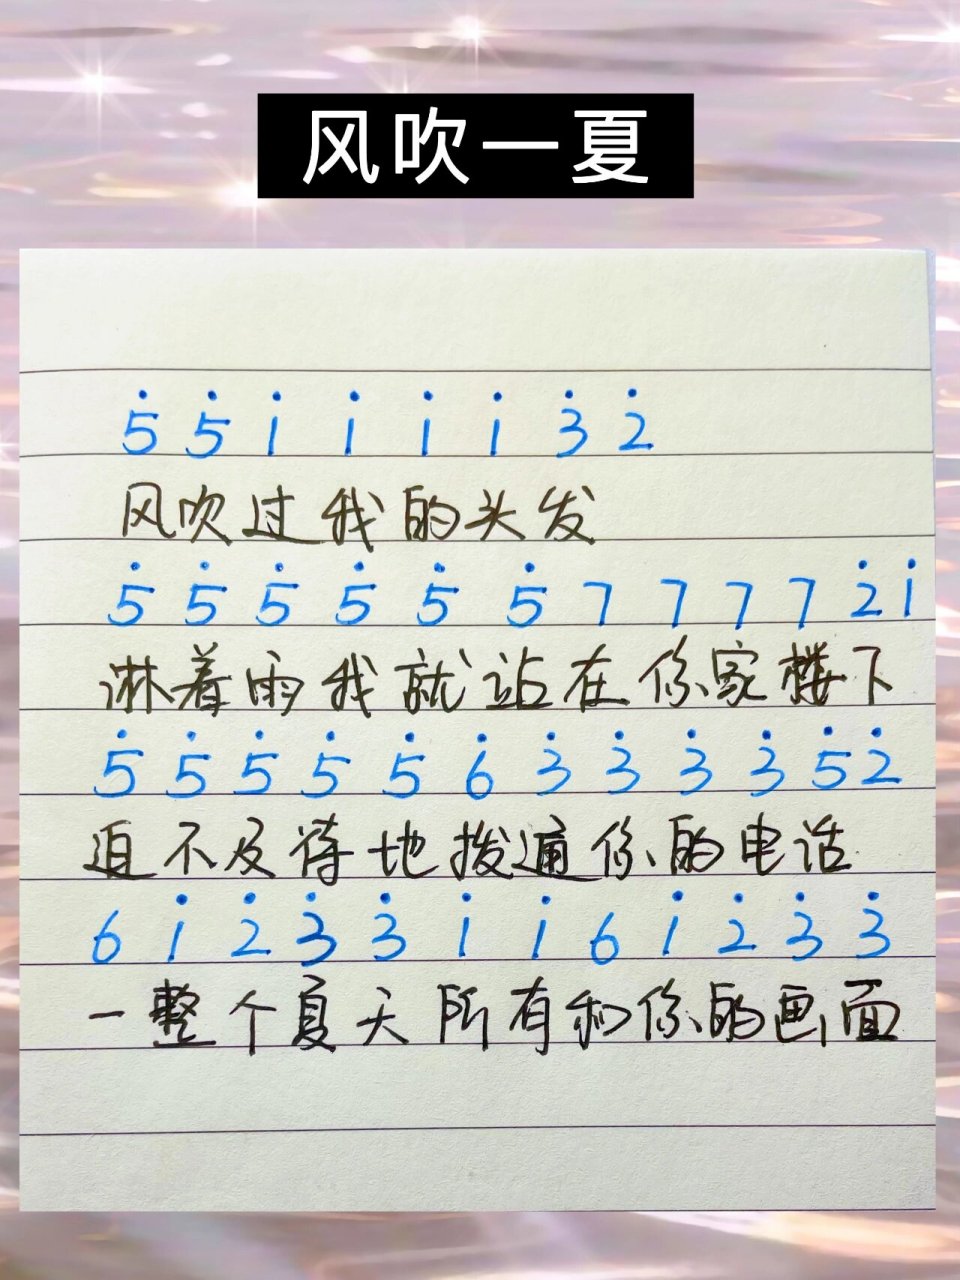 风吹一夏
5̇ 5̇ 1̇ 1̇ 1̇ 1̇ 3̇ 2̇
风吹过我的头发
5̇ 5̇ 5̇ 5̇ 5̇ 5̇ 7 7 7 7 2̇ 1̇
淋着雨我就站在你家楼下
5̇ 5̇ 5̇ 5̇ 5̇ 6̇ 3̇ 3̇ 3̇ 3̇ 5̇ 2̇
迫不及待地拨通你的电话
6 1̇ 2̇ 3̇ 3̇ 1̇ 1̇ 6 1̇ 2̇ 3̇ 3̇
一整个夏天所有和你的画面